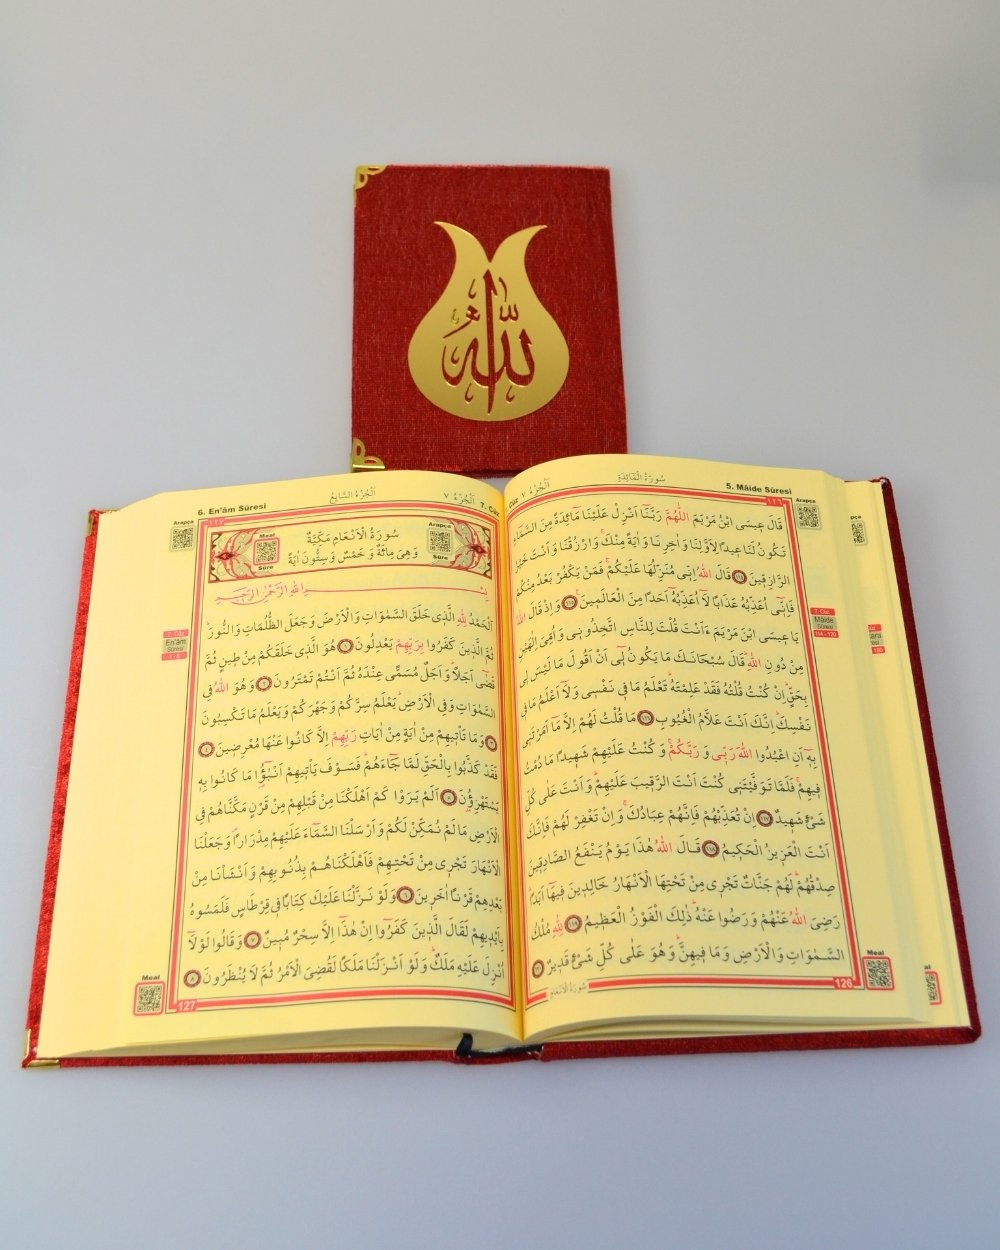 الله
5. Mâide Sûresi
سُورَةُ الْمَائِدَةِ
اَلْجُزْءُ ٧
Cüz
١٢٦
Arapça
قَالَ عِيسَى ابْنُ مَرْيَمَ اللّٰهُمَّ رَبَّنَٓا اَنْزِلْ عَلَيْنَا مَٓائِدَةً مِنَ السَّمَٓاءِ
تَكُونُ لَنَا عِيداً لِاَوَّلِنَا وَاٰخِرِنَا وَاٰيَةً مِنْكَ وَارْزُقْنَا وَاَنْتَ خَيْرُ
الرَّازِقِينَ ١١٤ قَالَ اللّٰهُ اِنّٖي مُنَزِّلُهَا عَلَيْكُمْ فَمَنْ يَكْفُرْ بَعْدُ مِنْكُمْ
فَاِنّٖٓي اُعَذِّبُهُ عَذَاباً لَٓا اُعَذِّبُهُٓ اَحَداً مِنَ الْعَالَمٖينَ ١١٥ وَاِذْ قَالَ اللّٰهُ
يَا عِيسَى ابْنَ مَرْيَمَ ءَاَنْتَ قُلْتَ لِلنَّاسِ اتَّخِذُونٖي وَاُمِّيَ اِلٰهَيْنِ
مِنْ دُونِ اللّٰهِ قَالَ سُبْحَانَكَ مَا يَكُونُ لٖٓي اَنْ اَقُولَ مَا لَيْسَ لٖي
بِحَقٍّ اِنْ كُنْتُ قُلْتُهُ فَقَدْ عَلِمْتَهُ تَعْلَمُ مَا فٖي نَفْسٖي وَلَٓا اَعْلَمُ مَا فٖي
نَفْسِكَ اِنَّكَ اَنْتَ عَلَّامُ الْغُيُوبِ ١١٦ مَا قُلْتُ لَهُمْ اِلَّا مَٓا اَمَرْتَنٖي
بِهٖٓ اَنِ اعْبُدُوا اللّٰهَ رَبّٖي وَرَبَّكُمْ وَكُنْتُ عَلَيْهِمْ شَهٖيداً مَا دُمْتُ
فٖيهِمْ فَلَمَّا تَوَفَّيْتَنٖي كُنْتَ اَنْتَ الرَّقٖيبَ عَلَيْهِمْ وَاَنْتَ عَلٰى كُلِّ
شَيْءٍ شَهٖيدٌ ١١٧ اِنْ تُعَذِّبْهُمْ فَاِنَّهُمْ عِبَادُكَ وَاِنْ تَغْفِرْ لَهُمْ فَاِنَّكَ
اَنْتَ الْعَزٖيزُ الْحَكٖيمُ ١١٨ قَالَ اللّٰهُ هٰذَا يَوْمُ يَنْفَعُ الصَّادِقٖينَ
صِدْقُهُمْ لَهُمْ جَنَّاتٌ تَجْرٖي مِنْ تَحْتِهَا الْاَنْهَارُ خَالِدٖينَ فٖيهَٓا اَبَداً
رَضِيَ اللّٰهُ عَنْهُمْ وَرَضُوا عَنْهُ ذٰلِكَ الْفَوْزُ الْعَظٖيمُ ١١٩ لِلّٰهِ مُلْكُ
السَّمٰوَاتِ وَالْاَرْضِ وَمَا فٖيهِنَّ وَهُوَ عَلٰى كُلِّ شَيْءٍ قَدٖيرٌ ١٢٠
7. Cüz
Mâide
Sûresi
114 - 120
Meal
126
سُورَةُ الْاَنْعَامِ
6. En'âm Sûresi
اَلْجُزْءُ السَّابِعُ
اَلْجُزْءُ ٧
7. Cüz
١٢٧
Arapça
Meal
Sûre
Arapça
Sûre
سُورَةُ الْاَنْعَامِ مَكِّيَّةٌ
وَهِيَ مِائَةٌ وَخَمْسٌ وَسِتُّونَ اٰيَةً
بِسْمِ اللّٰهِ الرَّحْمٰنِ الرَّحٖيمِ
اَلْحَمْدُ لِلّٰهِ الَّذٖي خَلَقَ السَّمٰوَاتِ وَالْاَرْضَ وَجَعَلَ الظُّلُمَاتِ وَالنُّورَ
ثُمَّ الَّذٖينَ كَفَرُوا بِرَبِّهِمْ يَعْدِلُونَ ١ هُوَ الَّذٖي خَلَقَكُمْ مِنْ طٖينٍ ثُمَّ
قَضٰٓى اَجَلاً وَاَجَلٌ مُسَمًّى عِنْدَهُ ثُمَّ اَنْتُمْ تَمْتَرُونَ ٢ وَهُوَ اللّٰهُ فِي
السَّمٰوَاتِ وَفِي الْاَرْضِ يَعْلَمُ سِرَّكُمْ وَجَهْرَكُمْ وَيَعْلَمُ مَا تَكْسِبُونَ
٣ وَمَا تَأْتٖيهِمْ مِنْ اٰيَةٍ مِنْ اٰيَاتِ رَبِّهِمْ اِلَّا كَانُوا عَنْهَا مُعْرِضٖينَ ٤
فَقَدْ كَذَّبُوا بِالْحَقِّ لَمَّا جَٓاءَهُمْ فَسَوْفَ يَأْتٖيهِمْ اَنْبٰٓؤُا مَا كَانُوا بِهٖ
يَسْتَهْزِؤُ۫نَ ٥ اَلَمْ يَرَوْا كَمْ اَهْلَكْنَا مِنْ قَبْلِهِمْ مِنْ قَرْنٍ مَكَّنَّاهُمْ فِي
الْاَرْضِ مَا لَمْ نُمَكِّنْ لَكُمْ وَاَرْسَلْنَا السَّمَٓاءَ عَلَيْهِمْ مِدْرَاراً وَجَعَلْنَا
الْاَنْهَارَ تَجْرٖي مِنْ تَحْتِهِمْ فَاَهْلَكْنَاهُمْ بِذُنُوبِهِمْ وَاَنْشَأْنَا مِنْ
بَعْدِهِمْ قَرْناً اٰخَرٖينَ ٦ وَلَوْ نَزَّلْنَا عَلَيْكَ كِتَاباً فٖي قِرْطَاسٍ فَلَمَسُوهُ
بِاَيْدٖيهِمْ لَقَالَ الَّذٖينَ كَفَرُٓوا اِنْ هٰذَٓا اِلَّا سِحْرٌ مُبٖينٌ ٧ وَقَالُوا لَوْلَٓا
اُنْزِلَ عَلَيْهِ مَلَكٌ وَلَوْ اَنْزَلْنَا مَلَكاً لَقُضِيَ الْاَمْرُ ثُمَّ لَا يُنْظَرُونَ ٨
7. Cüz
En'âm
Sûresi
1 - 8
Meal
127